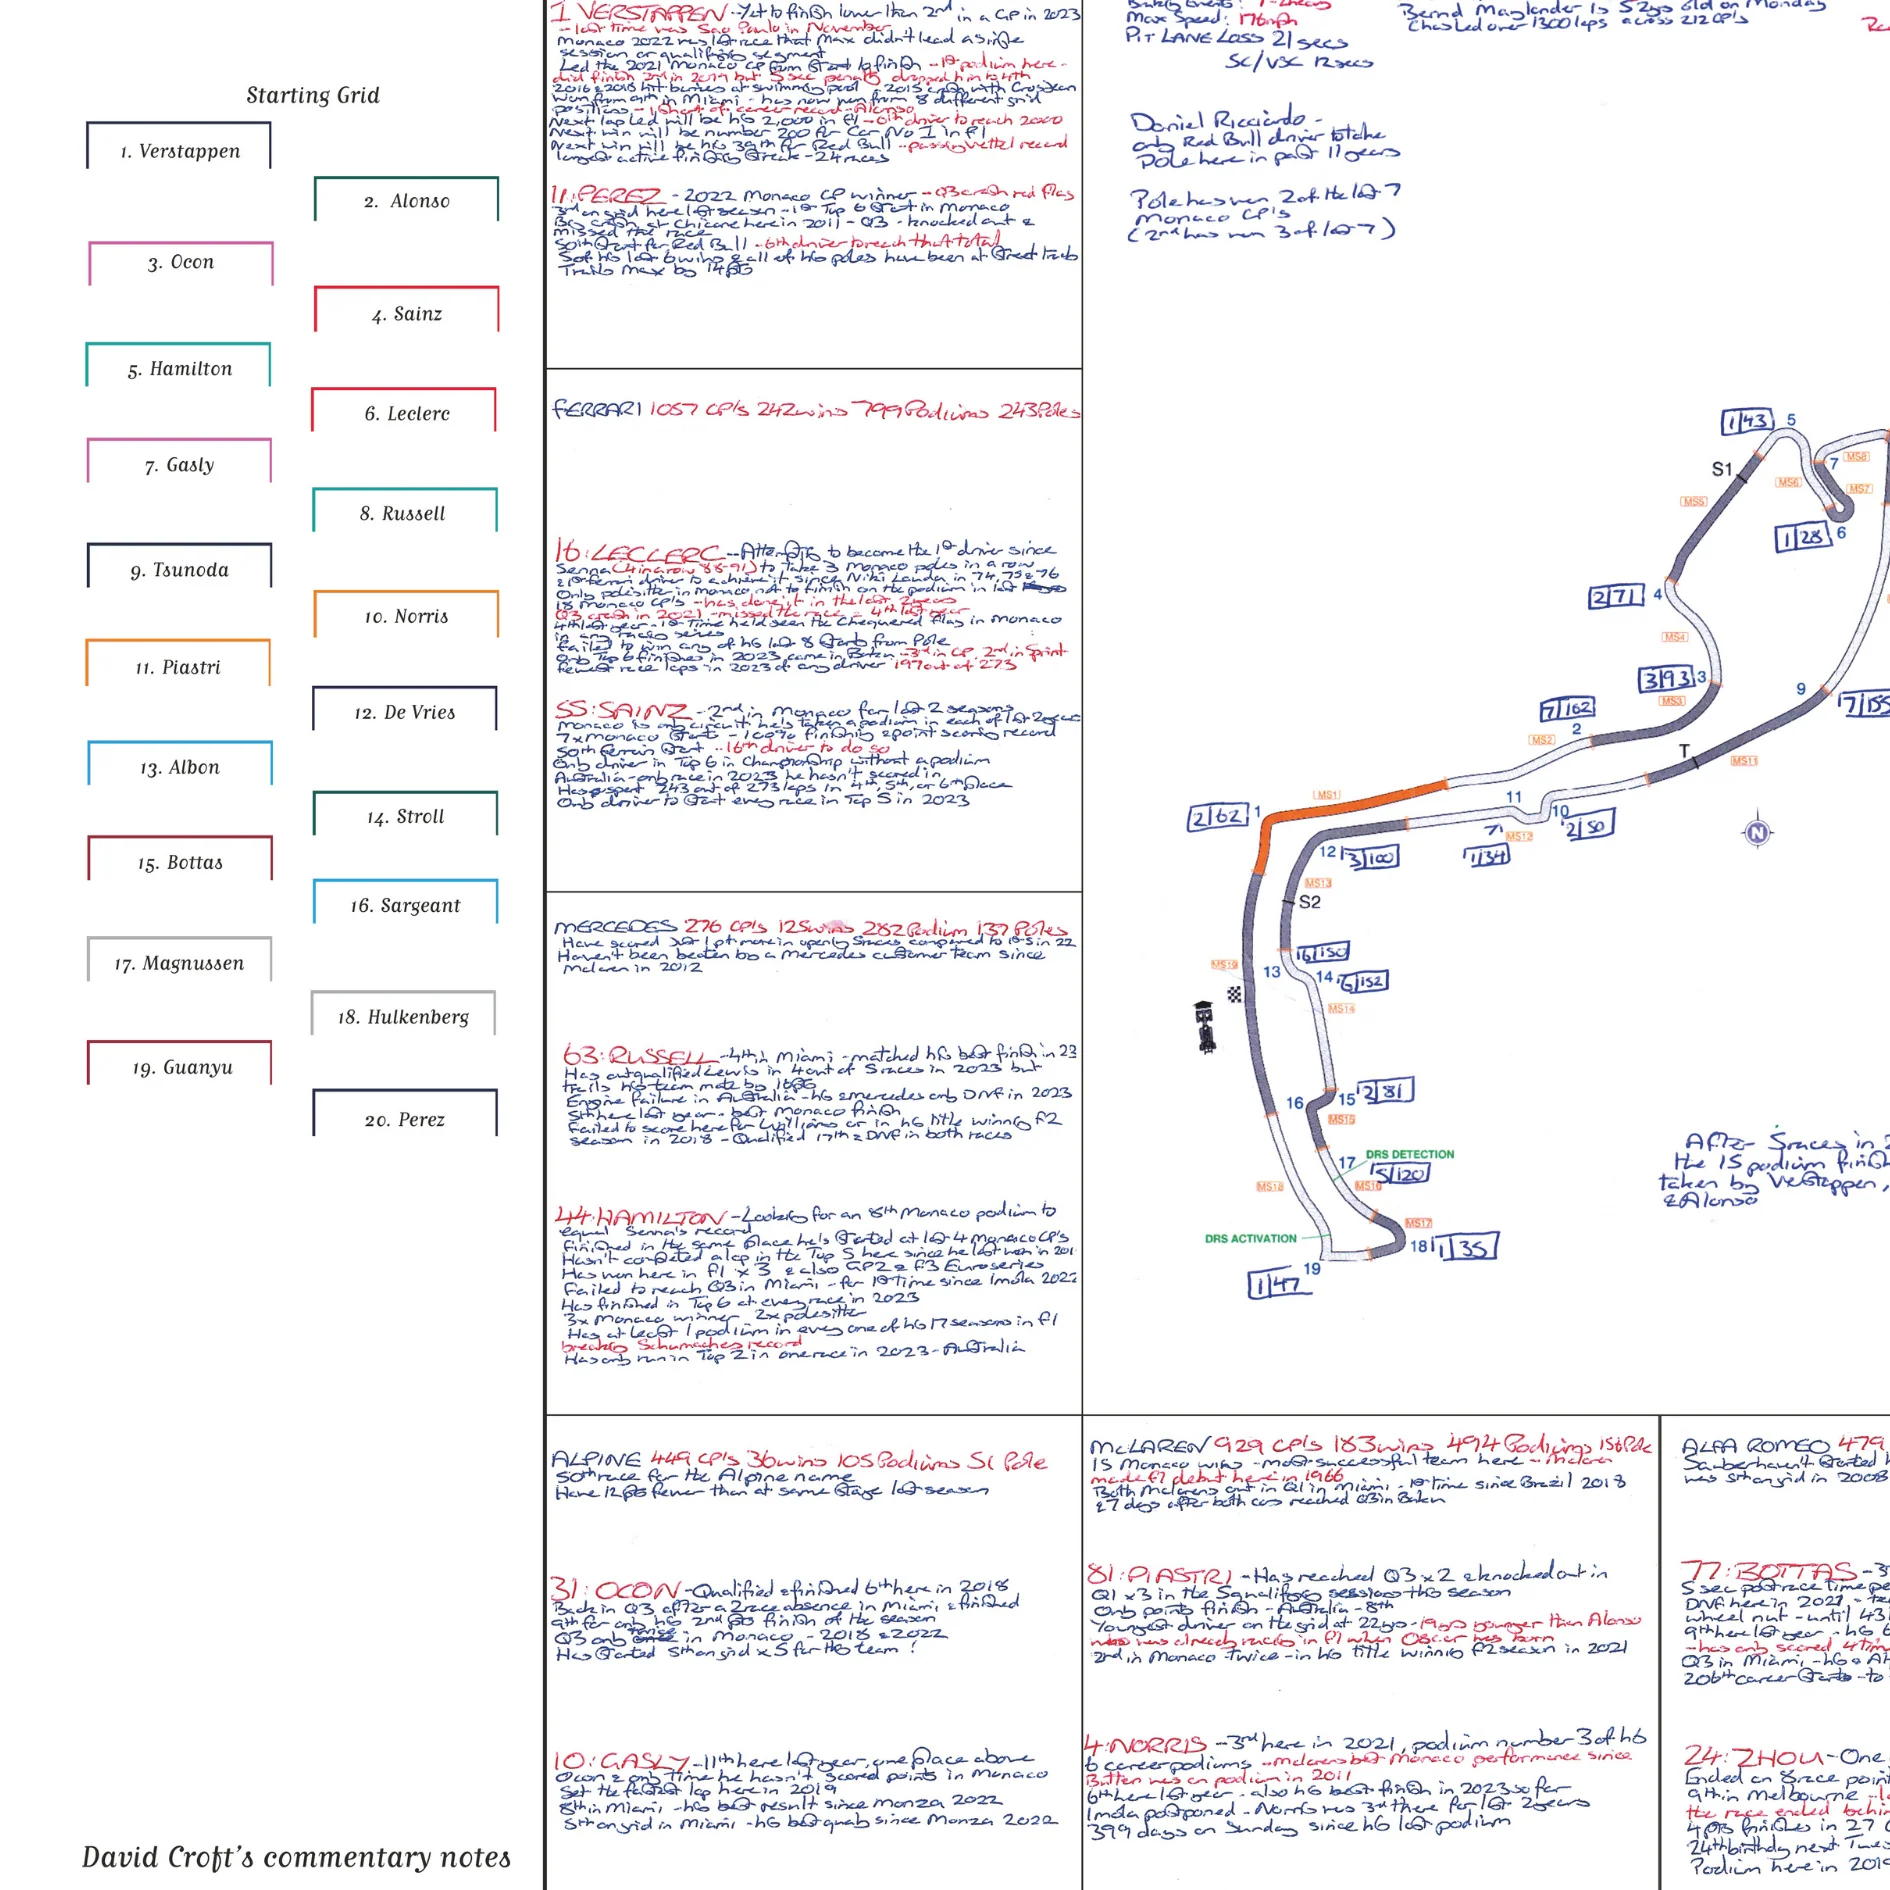 Starting Grid
1. Verstappen
2. Alonso
3. Ocon
4. Sainz
5. Hamilton
6. Leclerc
7. Gasly
8. Russell
9. Tsunoda
10. Norris
11. Piastri
12. De Vries
13. Albon
14. Stroll
15. Bottas
16. Sargeant
17. Magnussen
18. Hulkenberg
19. Guanyu
20. Perez
David Croft's commentary notes
1 VERSTAPPEN - Yet to finish lower than 2nd in a GP in 2023
- last time was Sao Paulo in November
Monaco 2022 was last race that Max didn't lead a single
session or qualifying segment
Led the 2021 Monaco GP from Start to finish - 1st podium here -
did finish 2nd in 2019 but 5 sec penalty dropped him to 4th
2016 & 2018 hit barriers at swimming pool - 2015 crash with Grosjean
Won from 9th in Miami - has now won from 8 different grid
positions - 1 short of career record - Alonso
Next lap led will be his 2,000 in F1 - 6th driver to reach 2000
Next win will be number 200 for Car No 1 in F1
Next win will be his 39th for Red Bull - passing Vettel record
longest active finishing streak - 24 races
11: PEREZ - 2022 Monaco GP winner - Q3 crash red flag
3rd on grid here last season - 1st Top 6 Start in Monaco
Big crash at Chicane here in 2011 - Q3 - knocked out &
missed the race
50th Start for Red Bull - 6th driver to reach that total
5 of his last 6 wins & all of his poles have been at Street tracks
Trails Max by 14pts
FERRARI 1057 GP's 242 wins 799 Podiums 243 Poles
16: LECLERC - Attempting to become the 1st driver since
Senna (4 in a row 88-91) to take 3 Monaco poles in a row
& 1st Ferrari driver to achieve it since Niki Lauda in 74, 75 & 76
Only polesitter in Monaco not to finish on the podium in last
18 Monaco GP's - has done it in the last 2 years
Q3 crash in 2021 - missed the race - 4th last year
4th last year - 1st Time he'd seen the Chequered flag in Monaco
in any races series
Failed to win any of his last 8 Starts from Pole
Only Top 6 finishes in 2023 came in Baku - 3rd in GP, 2nd in Sprint
Fewest race laps in 2023 of any driver 197 out of 273
55: SAINZ - 2nd in Monaco for last 2 seasons
Monaco is only circuit he's taken a podium in each of last 2 years
7 x Monaco Starts - 100% finishing & point scoring record
50th Ferrari Start - 16th driver to do so
Only driver in Top 6 in Championship without a podium
Australia - only race in 2023 he hasn't scored in
Has spent 243 out of 273 laps in 4th, 5th, or 6th place
Only driver to Start every race in Top 5 in 2023
MERCEDES 276 GP's 125 wins 282 Podium 137 Poles
Have scored Just 1 pt more in opening 5 races compared to 1st 5 in 22
Haven't been beaten by a Mercedes customer team since
McLaren in 2012
63: RUSSELL - 4th in Miami - matched his best finish in 23
Has outqualified Lewis in 4 out of 5 races in 2023 but
trails his team mate by 16pts
Engine failure in Australia - his & Mercedes only DNF in 2023
5th here last year - best Monaco finish
Failed to score here for Williams or in his title winning F2
season in 2018 - Qualified 17th & DNF in both races
44: HAMILTON - Looking for an 8th Monaco podium to
equal Senna's record
Finished in the same place he's Started at last 4 Monaco GP's
Hasn't completed a lap in the Top 5 here since he last won in 201
Has won here in F1 x 3 & also GP2 & F3 Euroseries
Failed to reach Q3 in Miami - for 1st Time since Imola 2022
Has finished in Top 6 at every race in 2023
3x Monaco winner 2x polesitter
Has at least 1 podium in every one of his 17 seasons in F1
breaking Schumachers record
Has only run in Top 2 in one race in 2023 - Australia
ALPINE 449 GP's 36 wins 105 Podiums 51 Pole
50th race for the Alpine name
Have 12pts fewer than at same Stage last season
31: OCON - Qualified & finished 6th here in 2018
Back in Q3 after a 2 race absence in Miami, & finished
9th for only his 2nd pts finish of the season
Q3 only twice in Monaco - 2018 & 2022
Has Started 5th on grid x 5 for this team!
10: GASLY - 11th here last year, one place above
Ocon & only Time he hasn't scored points in Monaco
Set the fastest lap here in 2019
8th in Miami - his best result since Monza 2022
5th on grid in Miami - his best qualy since Monza 2022
Max Speed: 176mph
PIT LANE LOSS 21 secs
SC/VSC 12 secs
Bernd Maylander is 52 yrs old on Monday
(has led over 1300 laps across 212 GP's
Daniel Ricciardo -
only Red Bull driver to take
Pole here in past 11 years
Pole has won 2 of the last 7
Monaco GP's
(2nd has won 3 of last 7)
1|43 5
S1
7 MS8
MS6
MS7
MS5
1|28 6
2|71 4
MS4
3|93 3
MS3
9
7|155
7|162
2
MS2
T
MS11
MS1
2|62 1
11
10
2|50
MS12
1|34
12 3|100
N
MS13
S2
6|150
13
14 6|152
MS19
MS14
16
15 2|81
MS15
17 DRS DETECTION
5|120
MS18
MS16
MS17
DRS ACTIVATION
18 1|35
19
1|47
After 5 races in 2
the 15 podium finish
taken by Verstappen,
& Alonso
McLAREN 929 GP's 183 wins 494 Podiums 156 Pole
15 Monaco wins - most successful team here - McLaren
made F1 debut here in 1966
Both McLarens out in Q1 in Miami - 1st time since Brazil 2018
& 7 days after both cars reached Q3 in Baku
81: PIASTRI - Has reached Q3 x 2 & knocked out in
Q1 x 3 in the 5 qualifying sessions this season
Only points finish - Australia - 8th
Youngest driver on the grid at 22 yo - 19 yrs younger than Alonso
who was already racing in F1 when Oscar was born
2nd in Monaco twice - in his title winning F2 season in 2021
4: NORRIS - 3rd here in 2021, podium number 3 of his
6 career podiums - McLarens best Monaco performance since
Button was on podium in 2011
6th here last year - also his best finish in 2023 so far
Imola postponed - Norris was 3rd there for last 2 years
399 days on Sunday since his last podium
ALFA ROMEO 479
Sauber haven't Started
was 5th on grid in 2008
77: BOTTAS - 3
5 sec post race time pe
DNF here in 2021 -
wheel nut - until 43
9th here last year - his 6
- has only scored 4 tim
Q3 in Miami - his & A
206th career Starts - to
24: ZHOU - One
Ended an 8 race poin
9th in Melbourne
the race ended behin
4 pts finishes in 27
24th birthday next Tues
Podium here in 2019